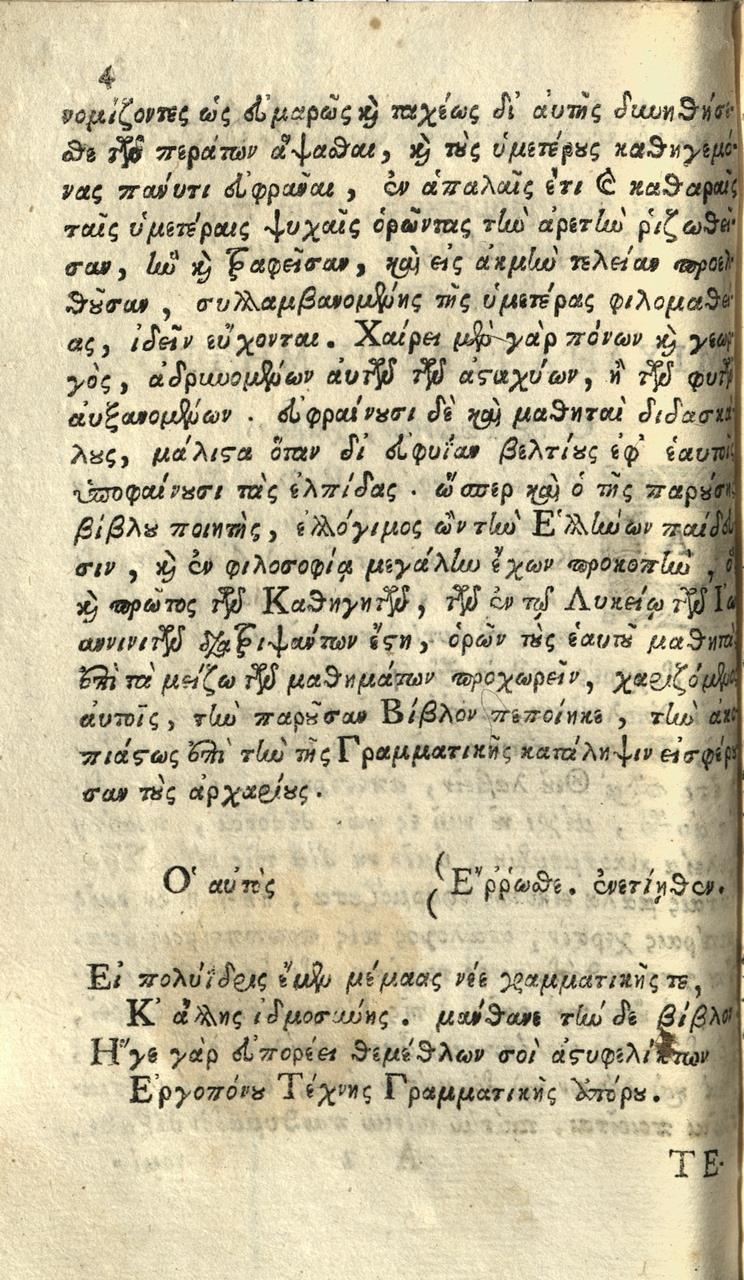 4
νομίζοντες ὡς εὐμαρῶς καὶ ταχέως δι' αὐτῆς δυνηθήσε-
σθε τῶν περάτων ἅψασθαι, καὶ τοὺς ὑμετέρους καθηγεμό-
νας πανύτι εὐφρᾶναι, ἐν ἁπαλαῖς ἔτι καὶ καθαραῖς
ταῖς ὑμετέραις ψυχαῖς ὁρῶντας τὴν ἀρετὴν ῥιζωθεῖ-
σαν, ἣν καὶ τραφεῖσαν, καὶ εἰς ἀκμὴν τελείαν προελ-
θοῦσαν, συλλαμβανομένης τῆς ὑμετέρας φιλομαθεί-
ας, ἰδεῖν εὔχονται. Χαίρει μὲν γὰρ πόνων καὶ γεωρ-
γὸς, ἁδρυνομένων αὐτῶν τῶν ἀσταχύων, ἢ τῶν φυτῶν
αὐξανομένων. εὐφραίνουσι δὲ καὶ μαθηταὶ διδασκά-
λους, μάλιστα ὅταν δι' εὐφυΐαν βελτίους ἐφ' ἑαυτοῖς
ὑποφαίνουσι τὰς ἐλπίδας. ὥσπερ καὶ ὁ τῆς παρούσης
βίβλου ποιητὴς, ἐλλόγιμος ὢν τὴν Ἑλλήνων παίδευ-
σιν, καὶ ἐν φιλοσοφίᾳ μεγάλην ἔχων προκοπὴν, ὁ
καὶ πρῶτος τῶν Καθηγητῶν, τῶν ἐν τῷ Λυκείῳ τῶν Ἰω-
αννινιτῶν διατριψάντων ἔτη, ὁρῶν τοὺς ἑαυτοῦ μαθητὰς
ἐπὶ τὰ μείζω τῶν μαθημάτων προχωρεῖν, χαριζόμενος
αὐτοῖς, τὴν παροῦσαν Βίβλον πεποίηκε, τὴν ἀκο-
πιάστως ἐπὶ τὴν τῆς Γραμματικῆς κατάληψιν εἰσφέρου-
σαν τοὺς ἀρχαρίους.
Ὁ αὐτὸς ( Ἔῤῥωσθε. ἐνετίηθεν.
Εἰ πολύϊδρις ἔμεν μέμαας νέε γραμματικῆς τε,
Κ' ἄλλης ἰδμοσύνης. μάνθανε τήν δε βίβλον
Ἥγε γὰρ εὐπορέει θεμέθλων σοὶ ἀστυφελίκτων
Ἐργοπόνου Τέχνης Γραμματικῆς εὐπόρου.
ΤΕ-